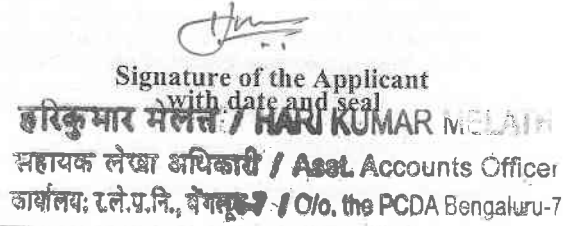 Signature of the Applicant
with date and seal
हरिकुमार मेलत्त / HARI KUMAR MELATH
सहायक लेखा अधिकारी / Asst. Accounts Officer
कार्यालय: र.ले.प्र.नि., बेंगलूरु-7 / O/o. the PCDA Bengaluru-7